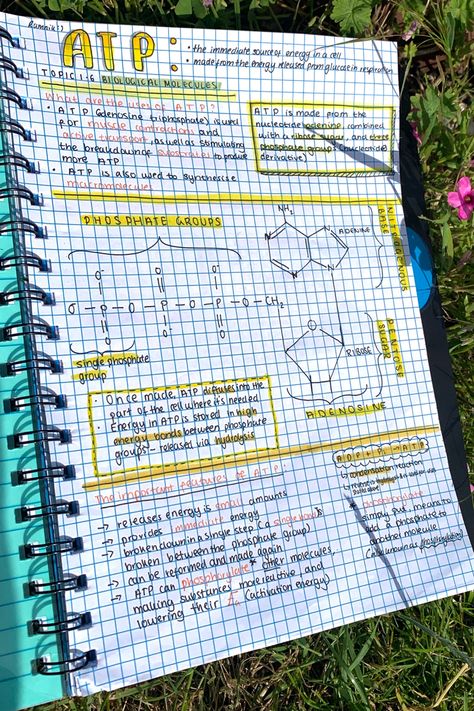 Ramnik :)
ATP:
• the immediate source of energy in a cell
• made from the energy released from glucose in respiration
TOPIC 1.6 BIOLOGICAL MOLECULES
What are the uses of ATP?
• ATP (adenosine triphosphate) is used
for muscle contractions and
active transport, as well as stimulating
the breakdown of substrates to produce
more ATP
• ATP is also used to synthesise
macromolecules
ATP is made from the
nucleotide adenine, combined
with a ribose sugar, and three
phosphate groups (nucleotide
derivative)
PHOSPHATE GROUPS
NH₂
N
N
ADENINE
N
N
N
NITROGENOUS
BASE
O⁻ O O⁻
O – P – O – P – O – P – O – CH₂
O O⁻ O
single phosphate
group
O
RIBOSE
PENTOSE
SUGAR
ADENOSINE
• Once made, ATP diffuses into the
part of the cell where it's needed
• Energy in ATP is stored in high
energy bonds between phosphate
groups – released via hydrolysis
ADP + Pi → ATP
↳ condensation reaction
The important features of ATP:
→ releases energy in small amounts
→ provides immediate energy
→ broken down in a single step (a single bond is
broken between the phosphate group)
→ can be reformed and made again
→ ATP can phosphorylate* other molecules,
making substances more reactive and
lowering their Ea (activation energy)
* phosphorylate
simply put, means to
add a phosphate to
another molecule
(also known as phosphorylation)